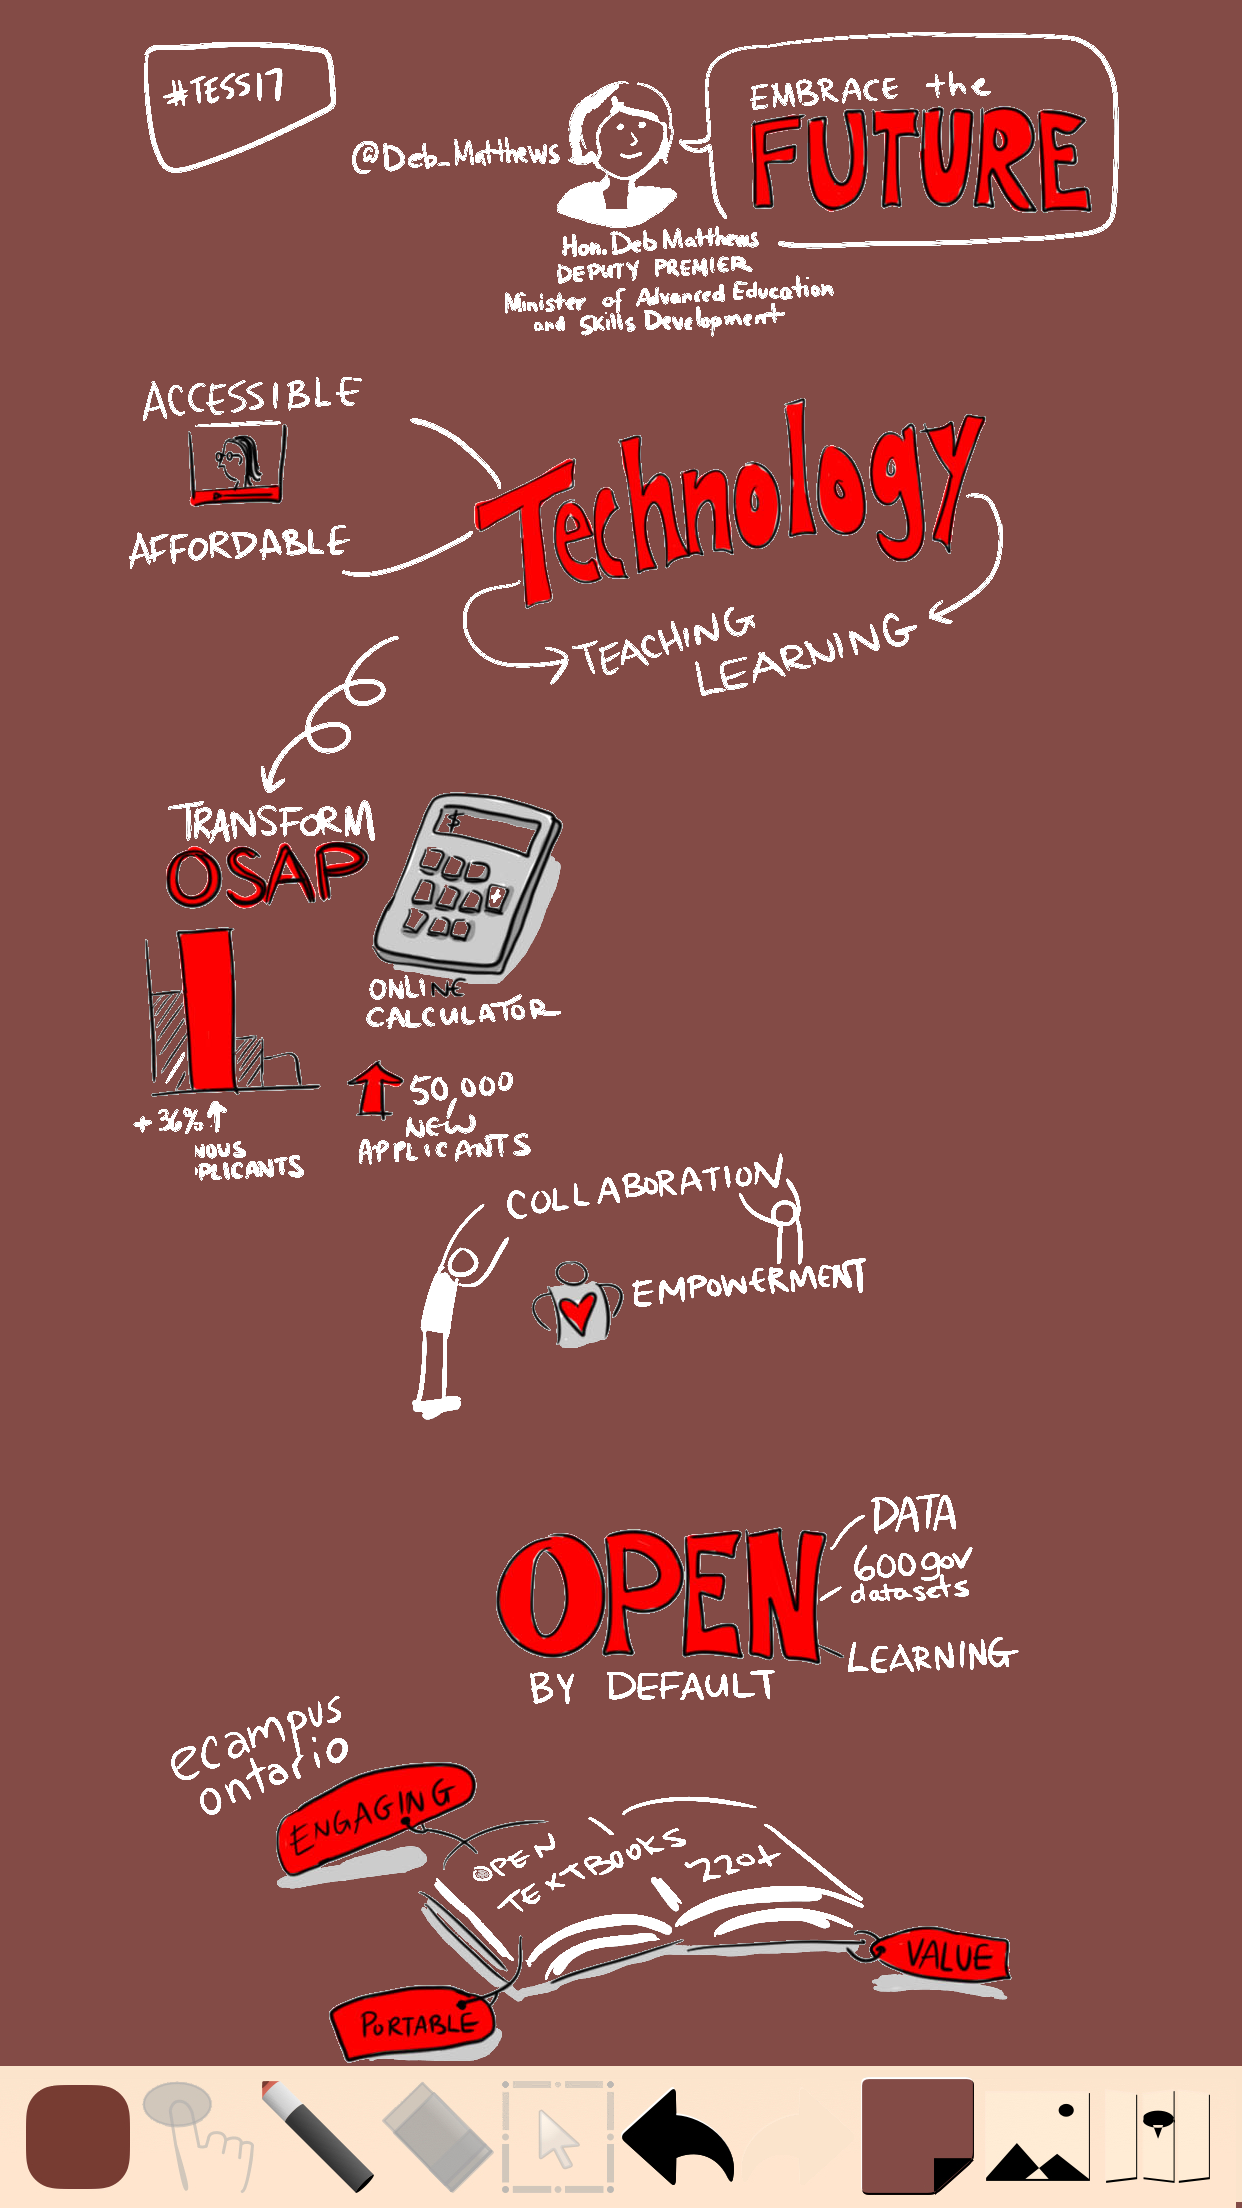 #TESS17
@Deb_Matthews
EMBRACE the
FUTURE
Hon. Deb Matthews
DEPUTY PREMIER
Minister of Advanced Education
and Skills Development
ACCESSIBLE
AFFORDABLE
Technology
TEACHING
LEARNING
TRANSFORM
OSAP
$
+
ONLINE
CALCULATOR
+36%
NOUS
PLICANTS
50,000
NEW
APPLICANTS
COLLABORATION
EMPOWERMENT
OPEN
BY DEFAULT
DATA
600 gov
datasets
LEARNING
ecampus
ontario
ENGAGING
OPEN
TEXTBOOKS
220+
VALUE
PORTABLE